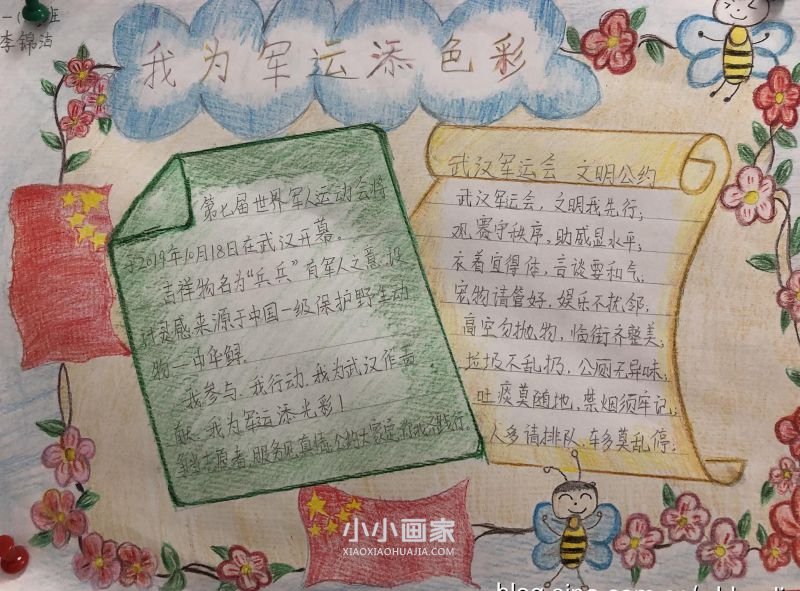 一(
班
李锦洁
我为军运添色彩
第七届世界军人运动会将
于2019年10月18日在武汉开幕。
吉祥物名为“兵兵”有军人之意,设
计灵感来源于中国一级保护野生动
物—中华鲟。
我参与、我行动、我为武汉作贡
献、我为军运添光彩!
争当志愿者,服务见真情,公约大家定,你我齐践行。
武汉军运会 文明公约
武汉军运会,文明我先行;
观赛守秩序,助威显水平;
衣着宜得体,言谈要和气,
宠物请管好,娱乐不扰邻,
高空勿抛物,临街齐整美;
垃圾不乱扔,公厕无异味;
吐痰莫随地,禁烟须牢记;
人多请排队,车多莫乱停;
小小画家
XIAOXIAOHUAJIA.COM